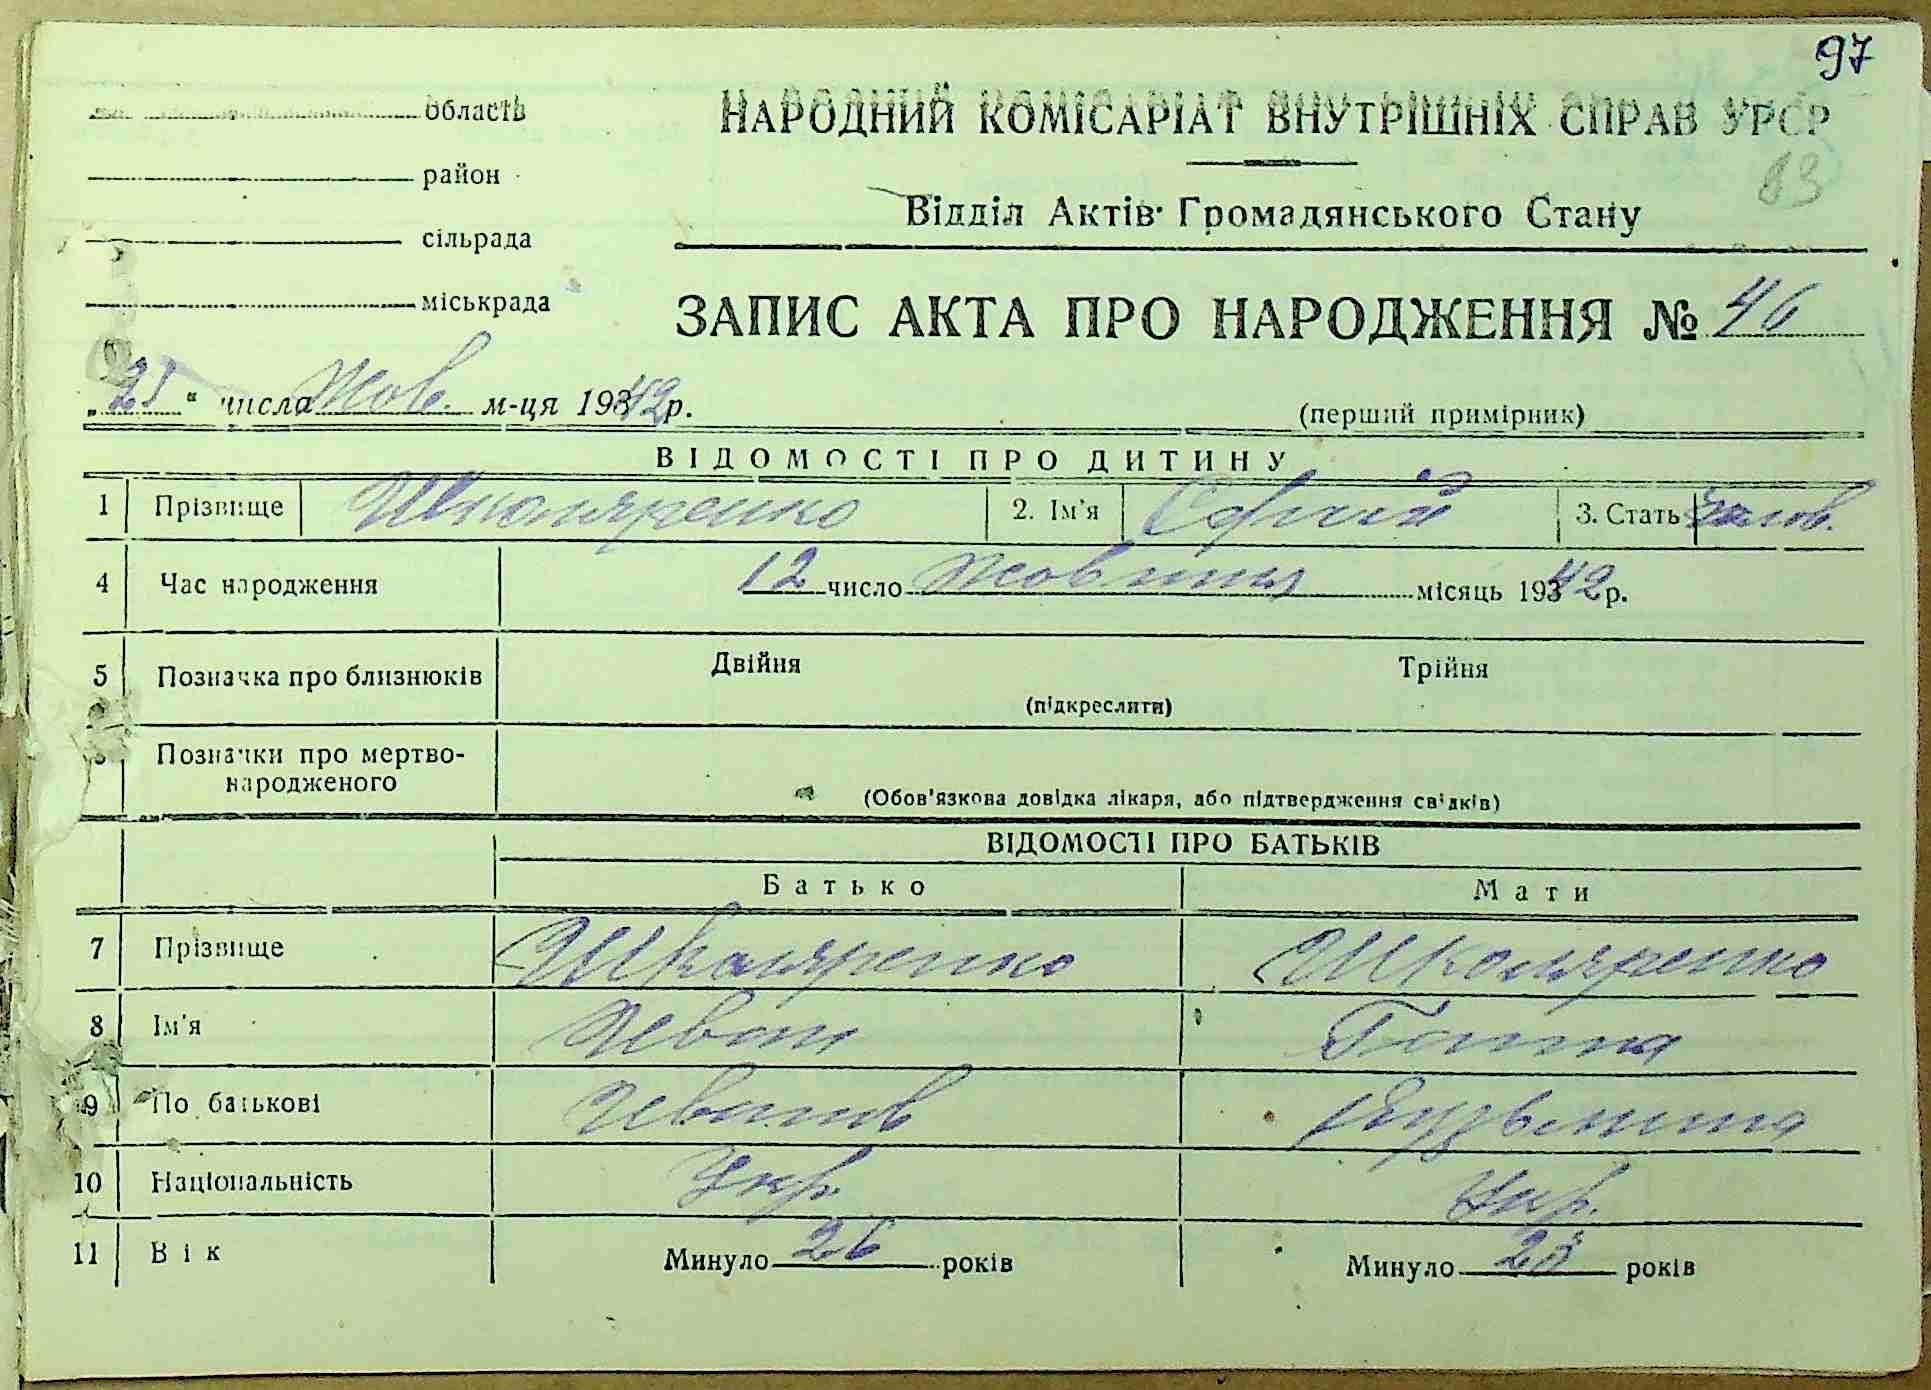 97
область
НАРОДНИЙ КОМІСАРІАТ ВНУТРІШНІХ СПРАВ УРСР
район
83
Відділ Актів Громадянського Стану
сільрада
міськрада
ЗАПИС АКТА ПРО НАРОДЖЕННЯ № 46
„25“ числа Жов. м-ця 1942 р.
(перший примірник)
ВІДОМОСТІ ПРО ДИТИНУ
1 Прізвище Школяренко 2. Ім'я Сергій 3. Стать чолов.
4 Час народження 12 число Жовтня місяць 1942 р.
5 Позначка про близнюків Двійня Трійня
(підкреслити)
6 Позначки про мертво-
народженого
(Обов'язкова довідка лікаря, або підтвердження свідків)
ВІДОМОСТІ ПРО БАТЬКІВ
Батько Мати
7 Прізвище Школяренко Школяренко
8 Ім'я Иван Ганна
9 По батькові Иванов
10 Національність Укр. Укр.
11 Вік Минуло 26 років Минуло 23 років